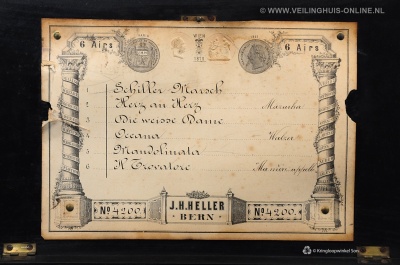 WWW.VEILINGHUIS-ONLINE.NL
6 Airs WIEN 1873 6 Airs
1 Schiller Marsch
2 Herz an Herz Mazurka
3 Die weisse Dame
4 Oceana Walzer
5 Mandolinata
6 Il Trovatore
J.H.HELLER
BERN
No 4200. No 4200.
Kringloopwinkel